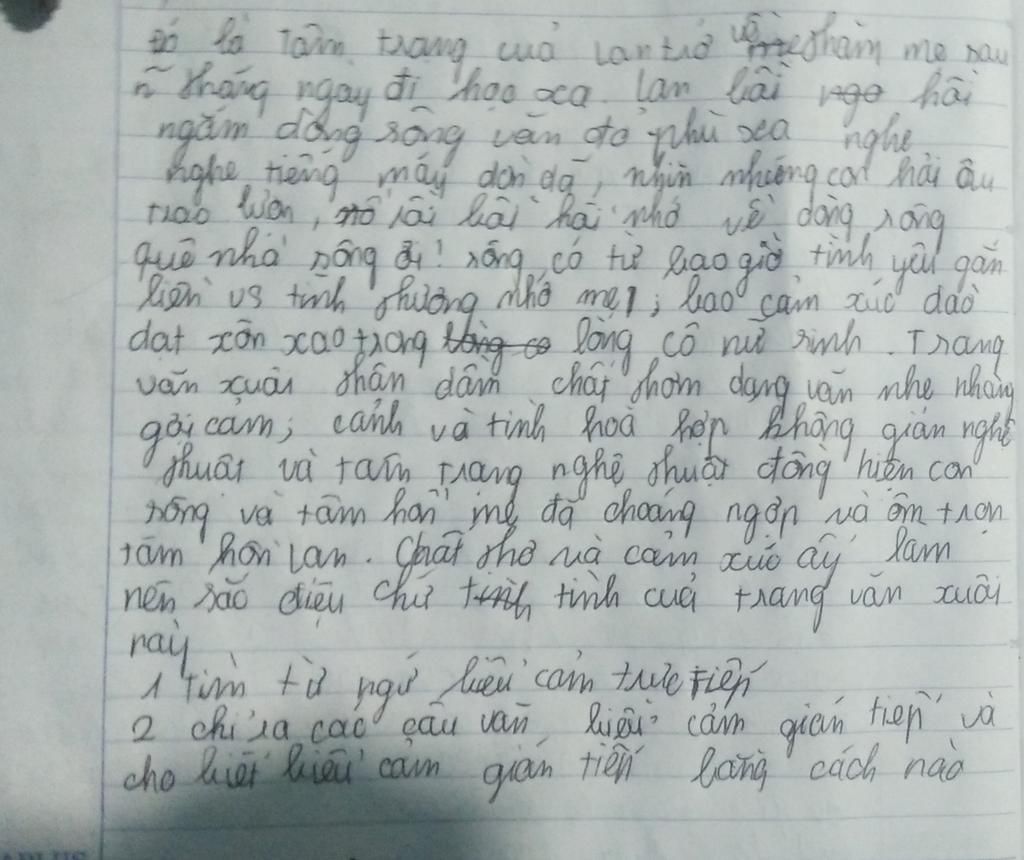 Đó là Tâm trạng cuả Lan trở về thăm mẹ sau
n tháng ngay đi học xa. Lan bồi hồi
ngắm dòng sông vẫn đỏ phù sa nghe
nghe tiếng máy dồn dã, nhìn nhưng con hải âu
trao lượn, rồi bồi hồi nhớ về dòng sông
quê nhà sông ơi! sông có từ bao giờ tình yêu gắn
liền vs tình thương nhớ mẹ, bao cảm xúc dào
dạt xôn xao trong lòng cô nữ sinh. Trang
văn xuôi thấn đẫm chất thơm dạng văn nhe nhàng
gợi cảm; cảnh và tình hoà hợp không gián nghệ
thuật và tâm trạng nghệ thuật đồng hiện con
sông và tâm hồn mẹ đã choáng ngợp và ôm tron
tâm hồn Lan. Chất thơ và cảm xúc ấy làm
nên sắc điệu chữ tình cuả trang văn xuôi
này
1 Tìm từ ngữ biểu cảm trực tiếp
2 chỉ ra các câu văn biểu cảm gián tiếp và
cho biết biểu cảm gián tiếp bằng cách nào